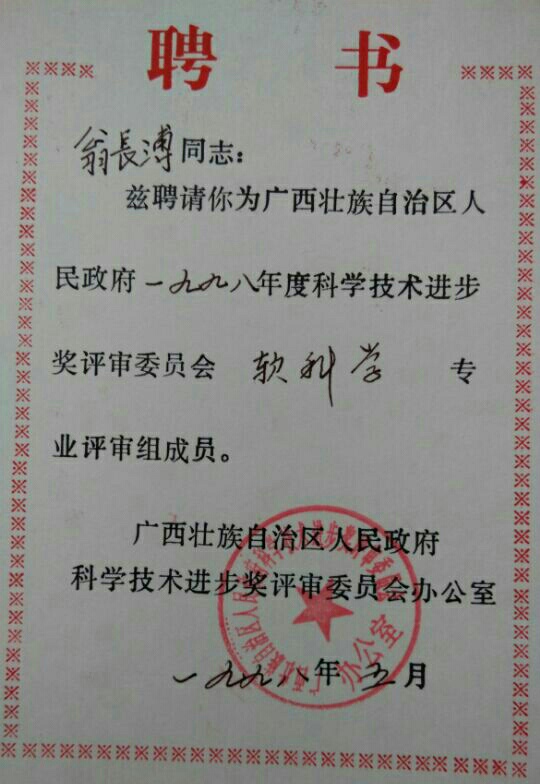 聘书
翁長溥同志：
兹聘请你为广西壮族自治区人
民政府一九九八年度科学技术进步
奖评审委员会 软科学 专
业评审组成员。
广西壮族自治区人民政府
科学技术进步奖评审委员会办公室
一九九八年五月
广西壮族自治区人民政府科学技术进步奖评审委员会
办公室